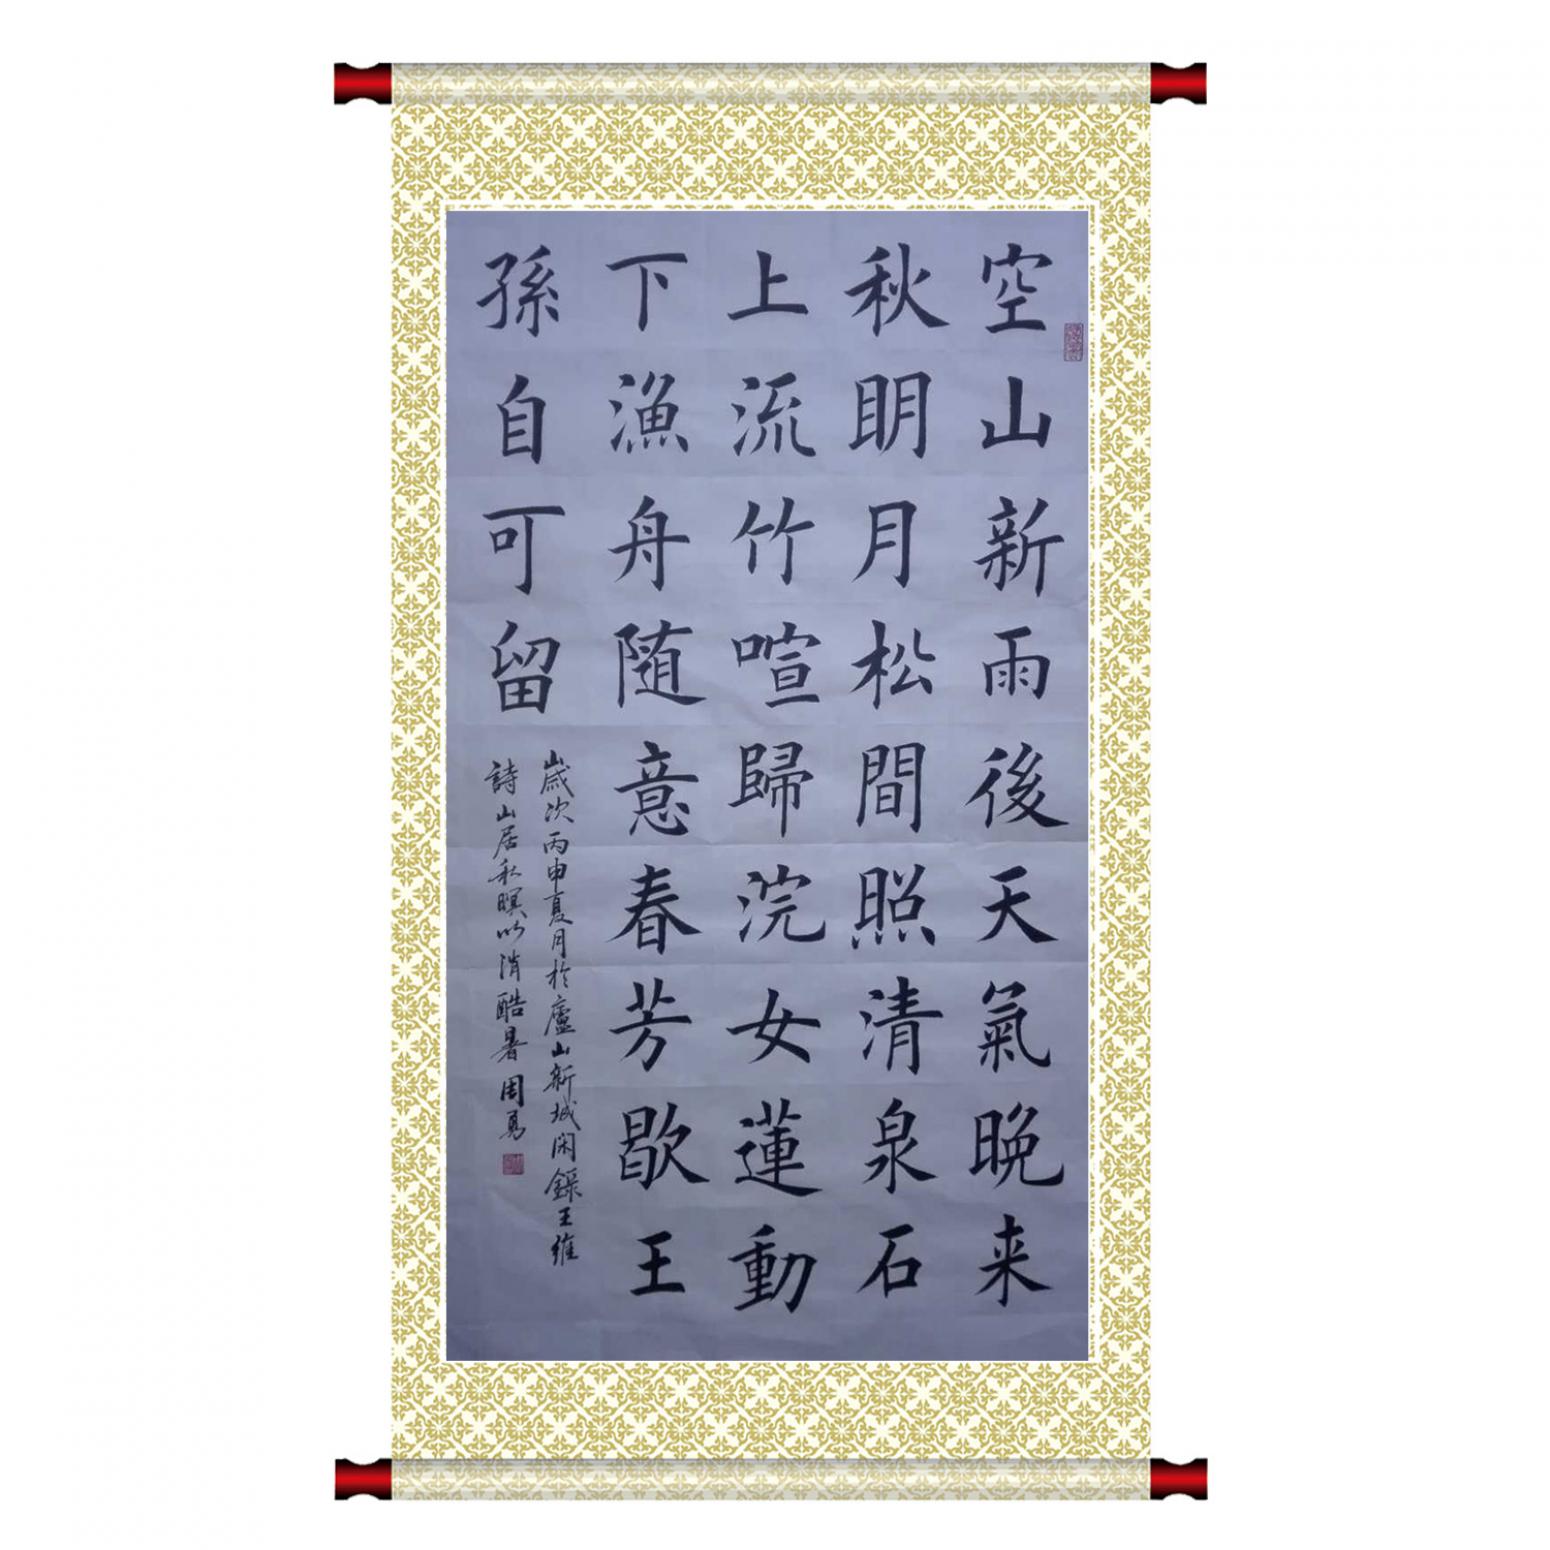 空山新雨後天氣晚来
秋明月松間照清泉石
上流竹喧歸浣女蓮動
下漁舟随意春芳歇王
孫自可留
歲次丙申夏月於廬山新城闲錄王維
詩山居秋暝以消酷暑周勇